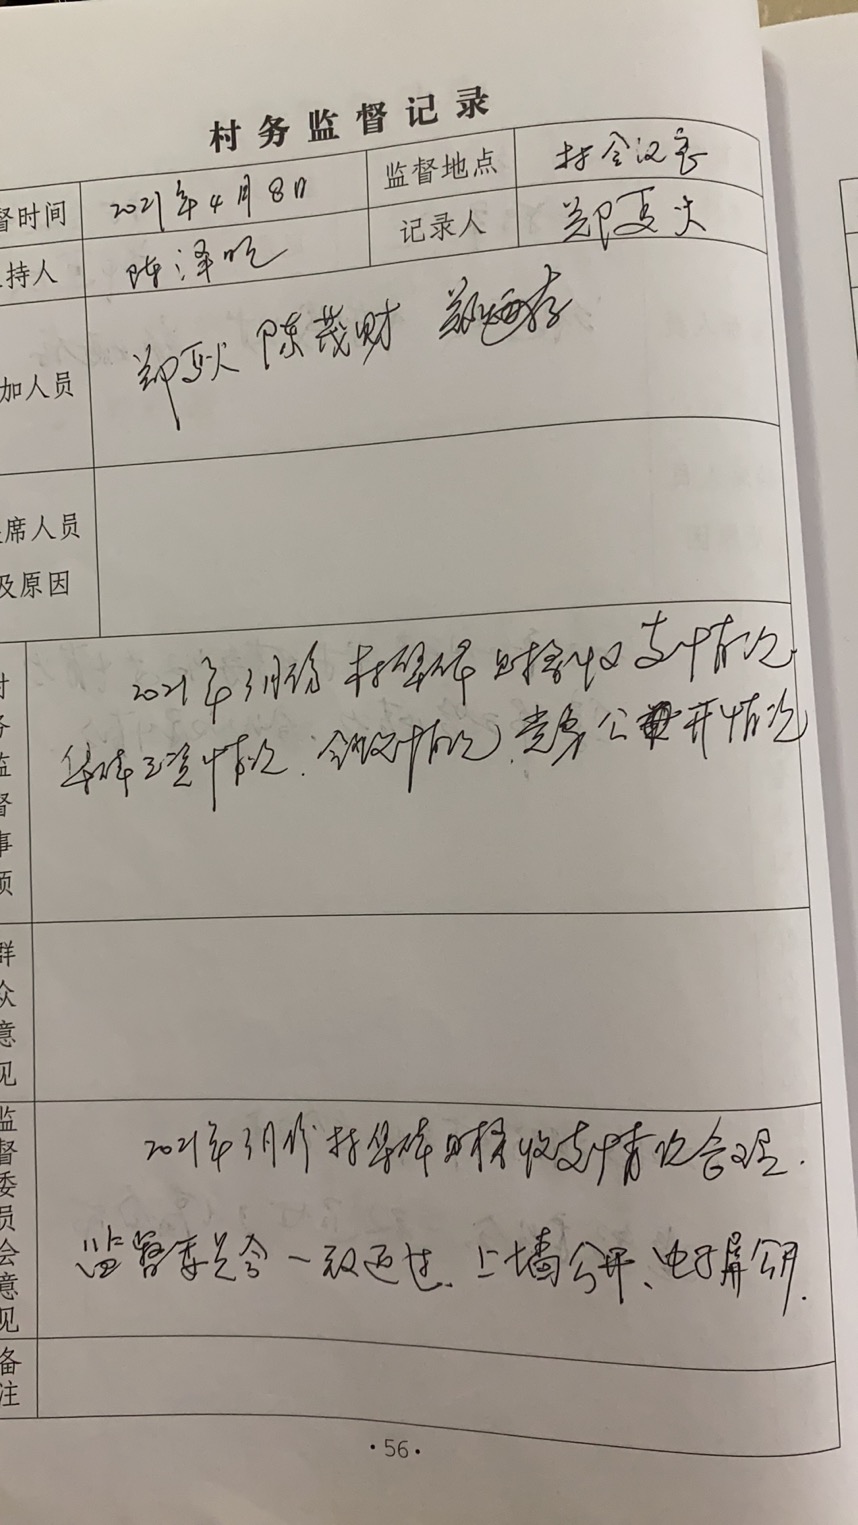 村务监督记录
督时间 2021年4月8日 监督地点 村会议室
持人 陈泽 记录人 郑夏
加人员 郑 陈茂财 郑
席人员
及原因
村务监督事项
2021年3月份村集体财务收支情况
集体工资情况、会议情况、党务公开情况
群众意见
监督委员会意见
2021年3月份村集体财务收支情况合理.
监督委员会一致通过、上墙公开、电子屏公开.
备注
·56·